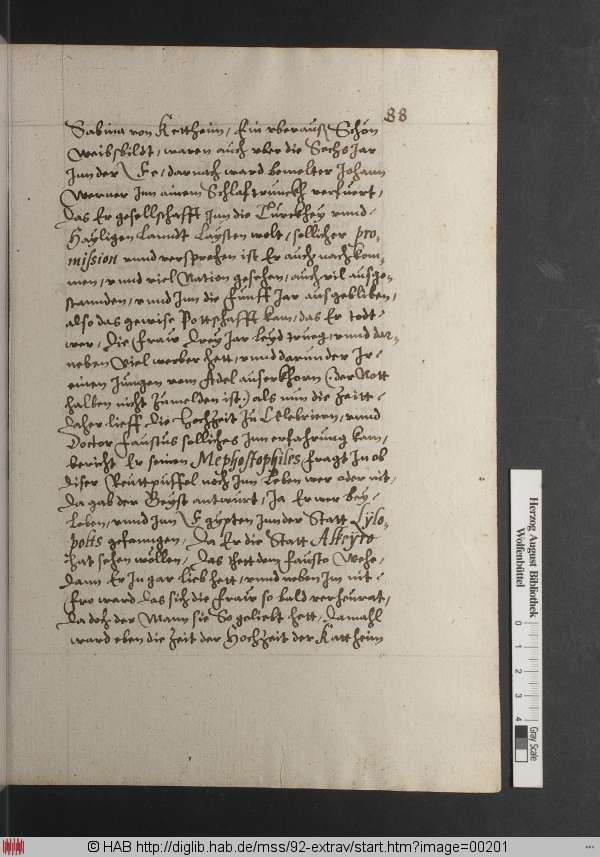 88
Sabina von Kettheim, Ein vberauß Schön
Weibsbildt, waren auch vber die Sechs Jar
Jnn der Ee, darnach ward bemelter Johann
Werner Jnn ainem Schlaftrunckh verfuert,
das Er gesellschafft Jnn die Turckhey vnnd
Hayligen Lanndt Laysten wolt, sollicher pro-
mission vnnd versprechen ist Er auch nachkom-
men, vnnd viel Nation gesehen, auch vil ausge-
stannden, vnnd Jnn die Funff Jar ausgebliben,
also das gewise Pottschafft kam, das Er todt
wer, Die Fraw Drey Jar leyd trueg, vnnd dar-
neben Viel werber hett, vnnd darunder Jr
einen Jungen vom Adel auserkhorn (: der Nott
halben nicht Zumelden ist :) als nun die Zeitt
daher lieff die Hochzeit Zu Celebriern, vnnd
Doctor Faustus solliches Jnn erfahrung kam,
bericht Er seinen Mephostophiles, fragt Jn ob
diser Reuttpuffel noch Jnn Leben wer oder nit,
da gab der Geyst antwurt, Ja Er wer bey
Leben, vnnd Jnn Egypten Jnn der Statt Lylo-
polts gefanngen, Da Er die Statt Alkeyro
hat sehen wöllen, das thett dem Fausto Wehe,
dann Er Jn gar lieb hett, vnnd neben Jm nit
fro ward das sich die Fraw so bald verheurat,
da doch der Mann sie So geliebt hett, damahl
ward eben die Zeit der Hochzeit der Kattheim
Herzog August Bibliothek
Wolfenbüttel
0 1 2 3 4
Gray Scale
© HAB http://diglib.hab.de/mss/92-extrav/start.htm?image=00201